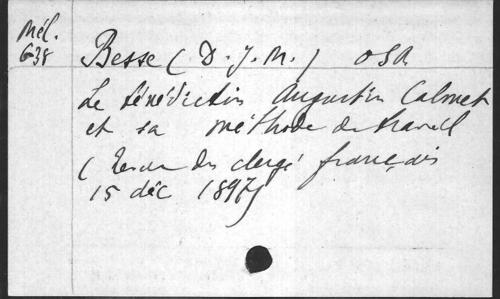 Mél.
638
Besse (D. J. M.) OSB
Le bénédictin Augustin Calmet
et sa méthode de travail
(Revue du clergé français
15 déc 1897)